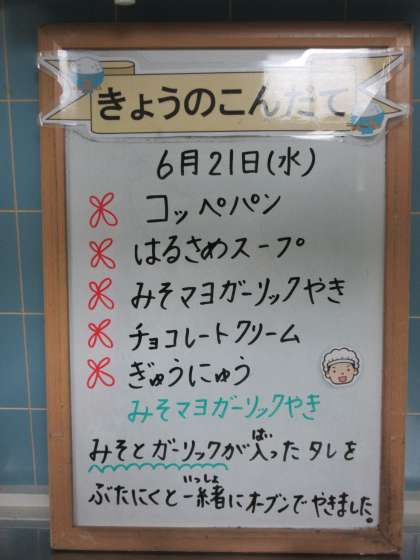 きょうのこんだて
6月21日(水)
コッペパン
はるさめスープ
みそマヨガーリックやき
チョコレートクリーム
ぎゅうにゅう
みそマヨガーリックやき
みそとガーリックが入ったタレを
ぶたにくと一緒にオーブンでやきました。